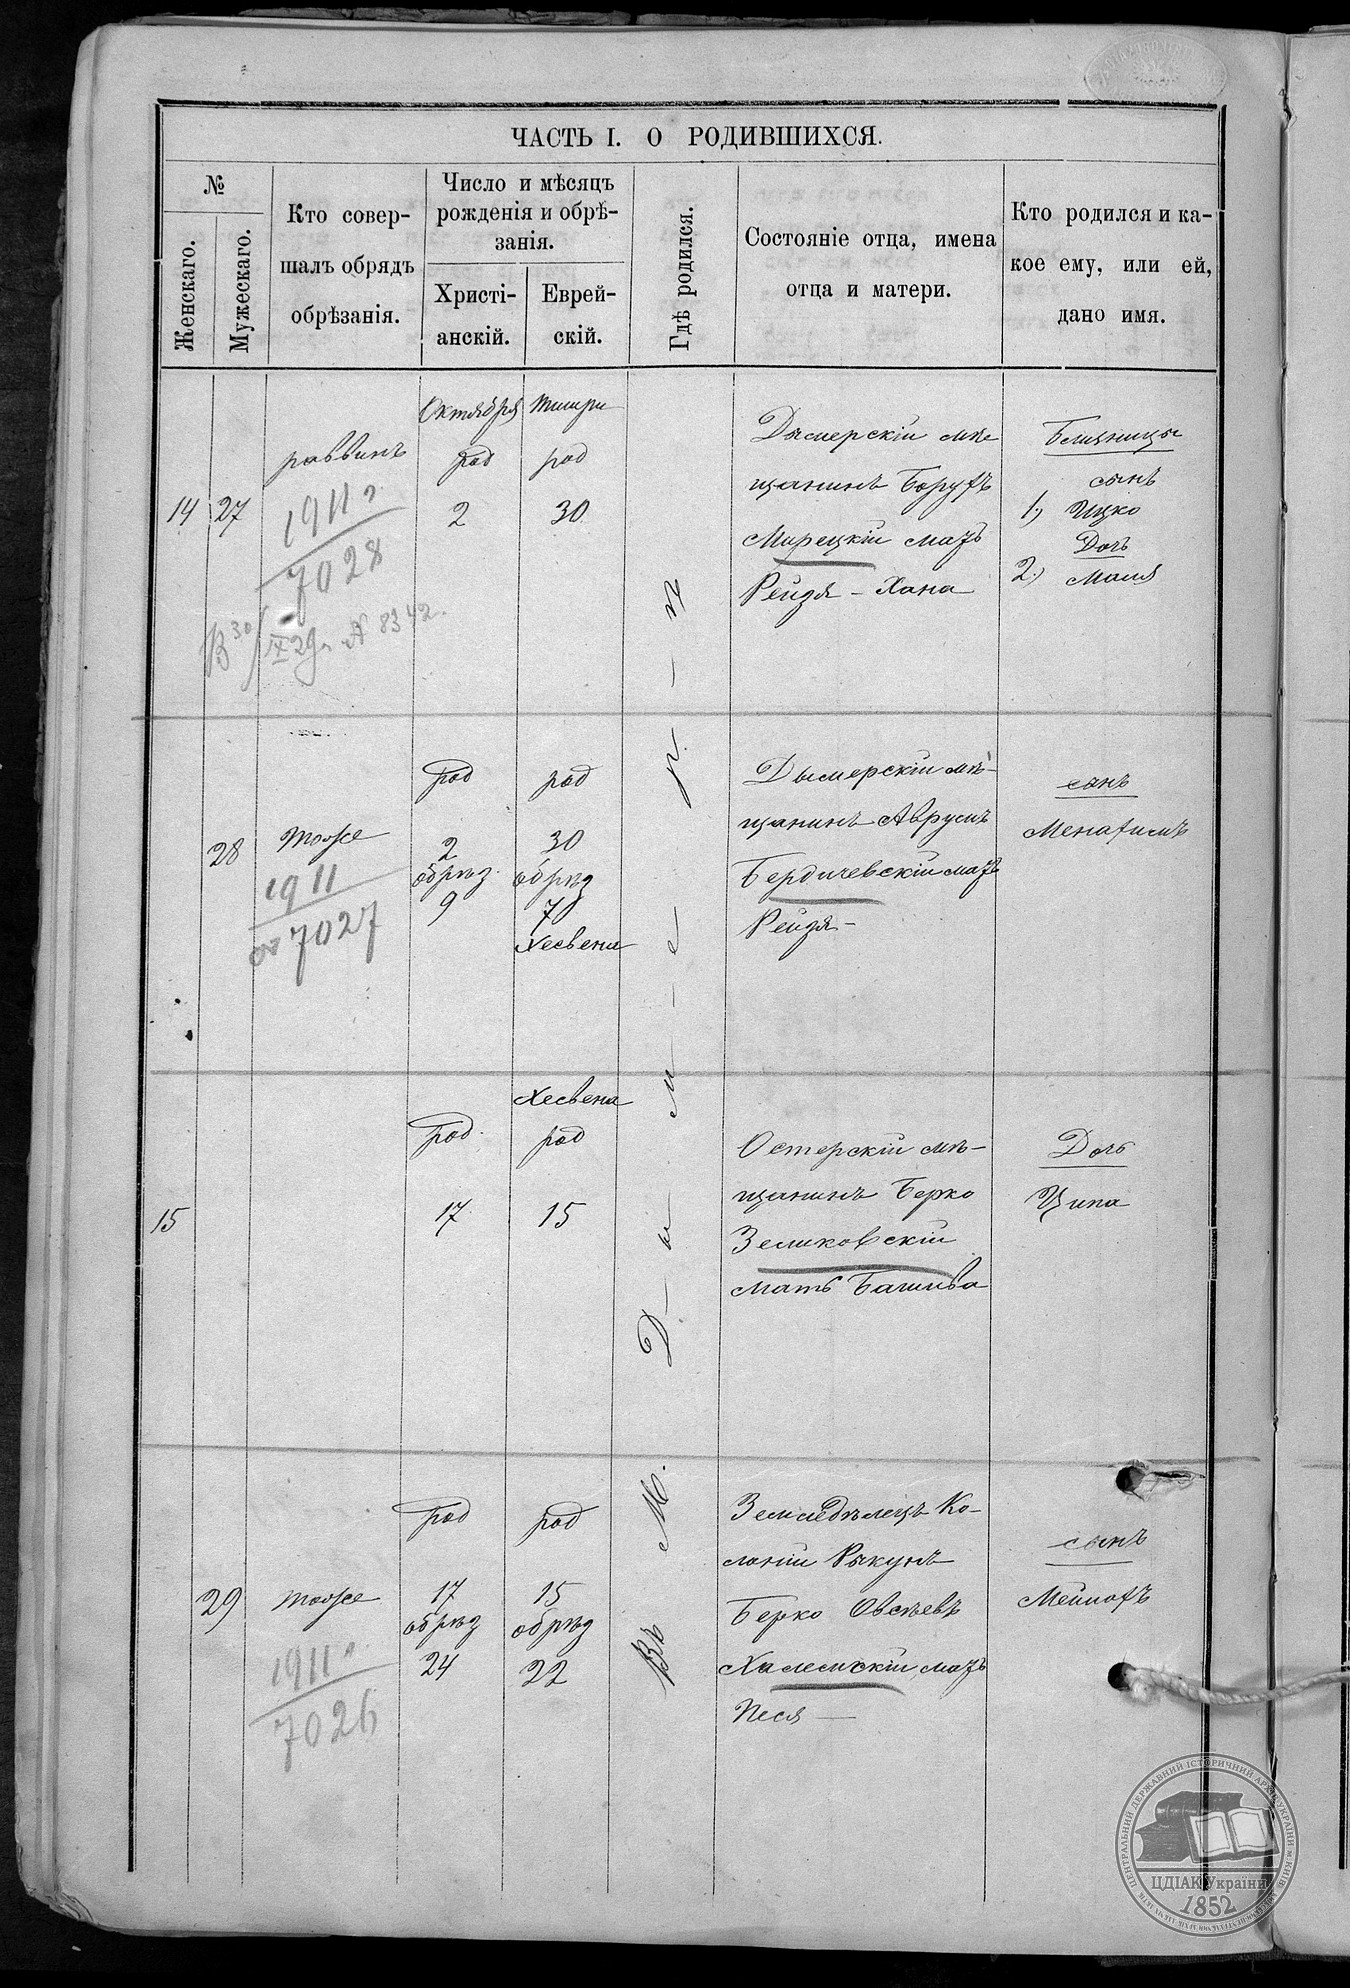 ЧАСТЬ I. О РОДИВШИХСЯ.
№
Женскаго.
Мужескаго.
Кто совер-
шалъ обрядъ
обрѣзанія.
Число и мѣсяцъ
рожденія и обрѣ-
занія.
Христі-
анскій.
Еврей-
скій.
Гдѣ родился.
Состояніе отца, имена
отца и матери.
Кто родился и ка-
кое ему, или ей,
дано имя.
14
27
раввинъ
1911 г
7028
30/IX 29 г. № 8342.
Октября
род
2
Тишри
род
30
Въ М. Д-ы-м-е-р-п
Дымерскій мѣ
щанинъ Борухъ
Мирецкій мать
Рейзя - Хана
Близнецы
сынъ
1, Ицко
Дочь
2, Маля
28
Мошке
1911
7027
род
2
обрѣз.
9
род
30
обрѣз
7
Хесвена
Дымерскій мѣ-
щанинъ Аврумъ
Бердичевскій мать
Рейзя -
сынъ
Менахимъ
15
род.
17
Хесвена
род
15
Остерскій мѣ-
щанинъ Берко
Зеликовскій
мать Башива
Дочь
Ципа
29
Мошке
1911 г
7026
род
17
обрѣз
24
род
15
обрѣз
22
Земледѣлецъ Ко-
лоніи Рыкунъ
Берко Овсѣевъ
Халемскій, мать
Песя —
сынъ
Мейнохъ
ЦЕНТРАЛЬНИЙ ДЕРЖАВНИЙ ІСТОРИЧНИЙ АРХІВ УКРАЇНИ м. КИЇВ
ЦДІАК України
1852